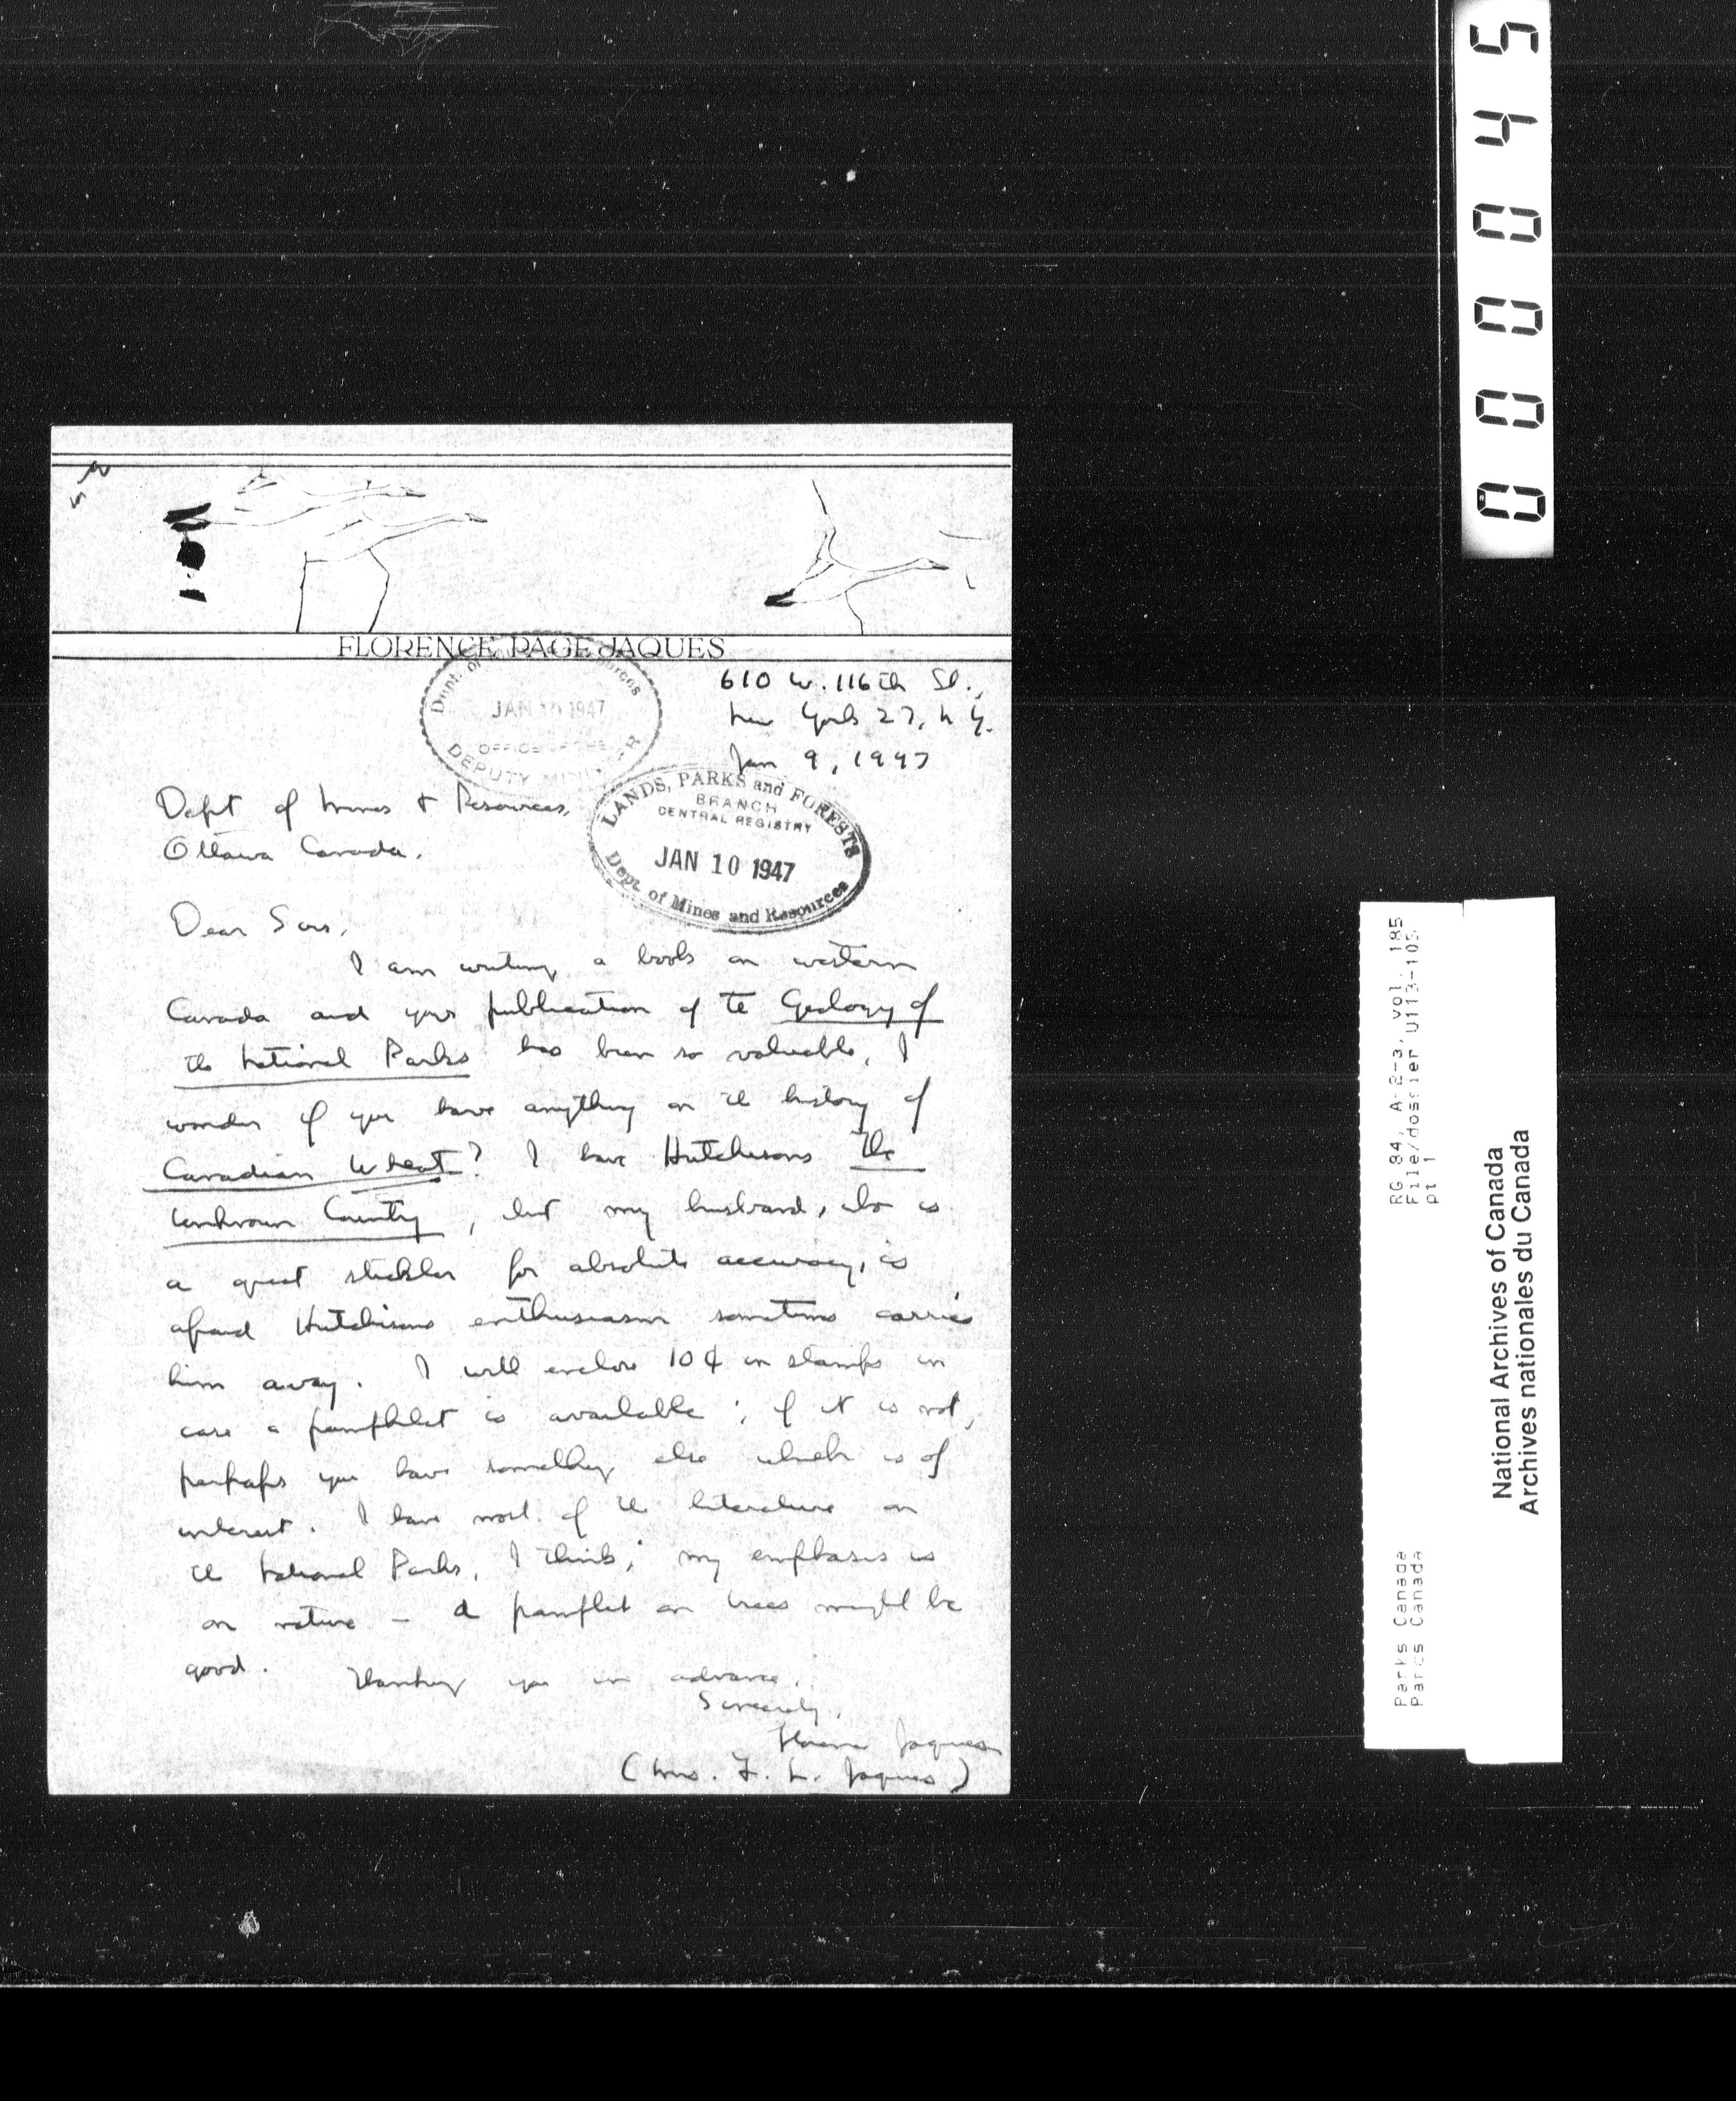 00045
FLORENCE PAGE JAQUES
Dept. of Mines and Resources
JAN 10 1947
OFFICE OF THE
DEPUTY MINISTER
610 W. 116th St.,
New York 27, N.Y.
Jan 9, 1947
LANDS, PARKS and FORESTS
BRANCH
CENTRAL REGISTRY
JAN 10 1947
Dept. of Mines and Resources
Dept of Mines & Resources,
Ottawa Canada.
Dear Sirs,
I am writing a book on western
Canada and your publication of the Geology of
the National Parks has been so valuable, I
wonder if you have anything on the history of
Canadian Wheat? I have Hutchisons The
Unknown Country, but my husband, who is
a great stickler for absolute accuracy, is
afraid Hutchisons enthusiasm sometimes carries
him away. I will enclose 10¢ in stamps in
case a pamphlet is available; if it is not,
perhaps you have something else which is of
interest. I have most of the literature on
the National Parks, I think; my emphasis is
on nature — a pamflet on trees might be
good. Thanking you in advance,
Sincerely,
Florence Jaques
(Mrs. F. L. Jaques)
RG 84, A-2-a, vol. 185
File/dossier U113-105
pt 1
Parks Canada
Parcs Canada
National Archives of Canada
Archives nationales du Canada